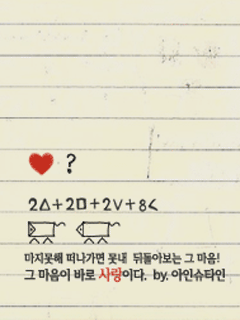 ♥ ?
2△+2□+2∨+8<
마지못해 떠나가면 못내 뒤돌아보는 그 마음!
그 마음이 바로 사랑이다. by. 아인슈타인